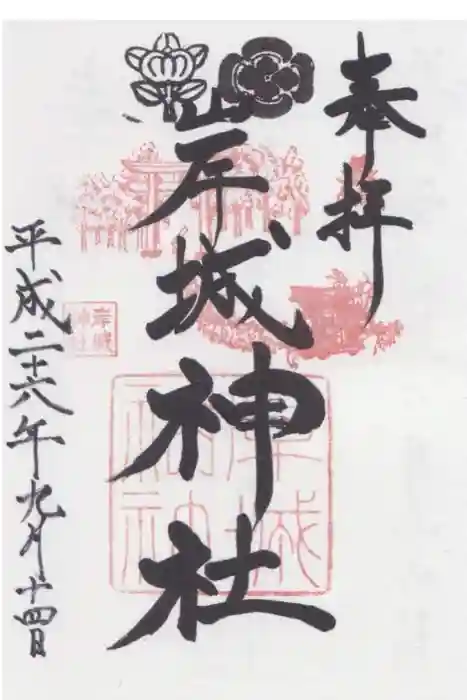 奉拝
岸城神社
平成二十六年九月十四日
岸城神社
岸城神社